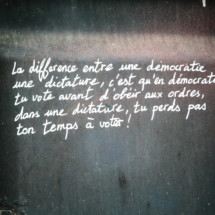 La différence entre une démocratie
une dictature, c'est qu'en démocrati
tu vote avant d'obéir aux ordres,
dans une dictature, tu perds pas
ton temps à voter !